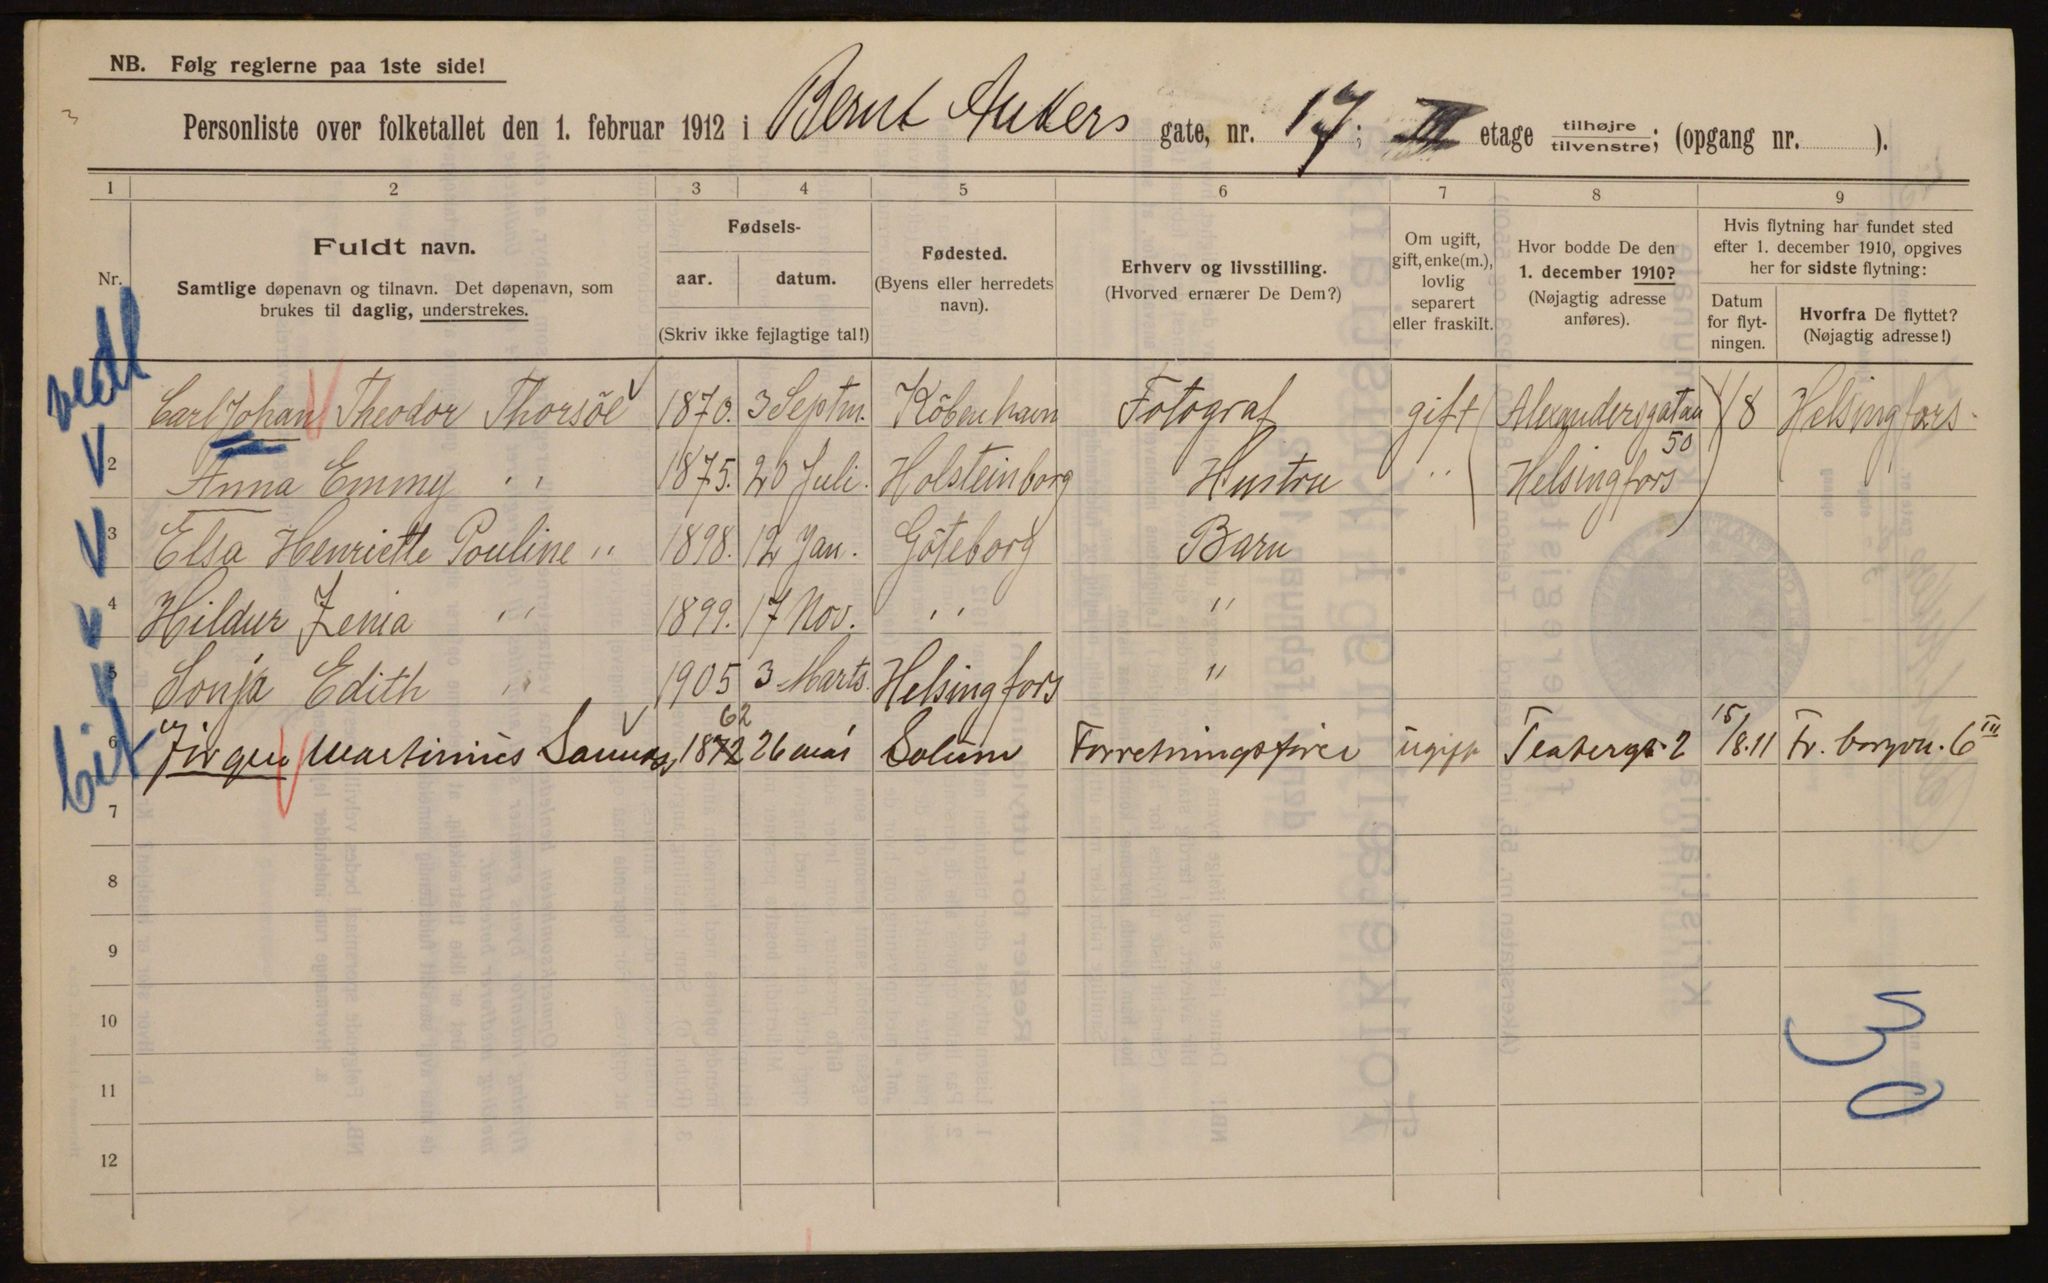 NB. Følg reglerne paa 1ste side!
Personliste over folketallet den 1. februar 1912 i Bernt Ankers gate, nr. 17; III etage tilhøjre tilvenstre; (opgang nr. ).
1 2 3 4 5 6 7 8 9
Nr.
Fuldt navn.
Samtlige døpenavn og tilnavn. Det døpenavn, som
brukes til daglig, understrekes.
Fødsels-
aar. datum.
(Skriv ikke fejlagtige tal!)
Fødested.
(Byens eller herredets
navn).
Erhverv og livsstilling.
(Hvorved ernærer De Dem?)
Om ugift,
gift, enke(m.),
lovlig
separert
eller fraskilt.
Hvor bodde De den
1. december 1910?
(Nøjagtig adresse
anføres).
Hvis flytning har fundet sted
efter 1. december 1910, opgives
her for sidste flytning:
Datum
for flyt-
ningen.
Hvorfra De flyttet?
(Nøjagtig adresse!)
Carl Johan Theodor Thorsöe 1870. 3 Septm. Köbenhavn Fotograf gift Alexandersgatan 50 1/8 Helsingfors.
2 Anna Emmy " 1875. 20 Juli. Holsteinborg Hustru " Helsingfors
3 Elsa Henriette Pouline " 1898. 12 Jan. Göteborg Barn
4 Hildur Zenia " 1899. 17 Nov. " "
5 Sonja Edith " 1905 3 Marts. Helsingfors "
62
6 Jörgen Martinius 1872 26 mai Solum Forretningsfører ugift Teatergt. 2 15/8.11 Fr. borgvn. 6 III
7
8
9
10
11
12